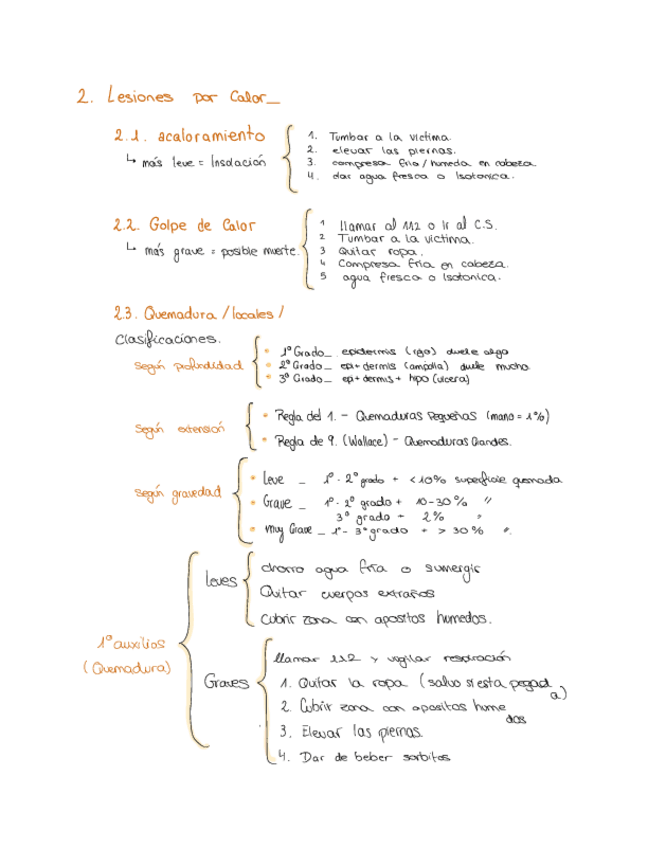 2. Lesiones por Calor_
2.1. acaloramiento
↳ más leve = Insolación
1. Tumbar a la víctima.
2. elevar las piernas.
3. compresa fría/humeda en cabeza
4. dar agua fresca o Isotonica.
2.2. Golpe de Calor
↳ más grave = posible muerte.
1 llamar al 112 o ir al C.S.
2 Tumbar a la victima.
3 Quitar ropa.
4 Compresa fría en cabeza.
5 agua fresca o Isotonica.
2.3. Quemadura /locales/
Clasificaciones.
según profundidad
• 1º Grado_ epidermis (rojo) duele algo
• 2º Grado_ epi+dermis (ampolla) duele mucho
• 3º Grado_ epi+dermis+ hipo (ulcera)
según extensión
• Regla del 1. - Quemaduras Pequeñas (mano = 1%)
• Regla de 9. (Wallace) - Quemaduras Grandes.
según gravedad
• Leve _ 1º- 2º grado + <10% superficie quemada
• Grave _ 1º- 2º grado + 10-30% "
3º grado - 2% "
• muy Grave _ 1º- 3º grado + > 30% ".
1º auxilios
(Quemadura)
leves
chorro agua fría o sumergir
Quitar cuerpos extraños
Cubrir zona con apositos humedos.
Graves
llamar 112 y vigilar respiración
1. Quitar la ropa (salvo si esta pegada)
2. Cubrir zona con apositos humedos
3. Elevar las piernas
4. Dar de beber sorbitos